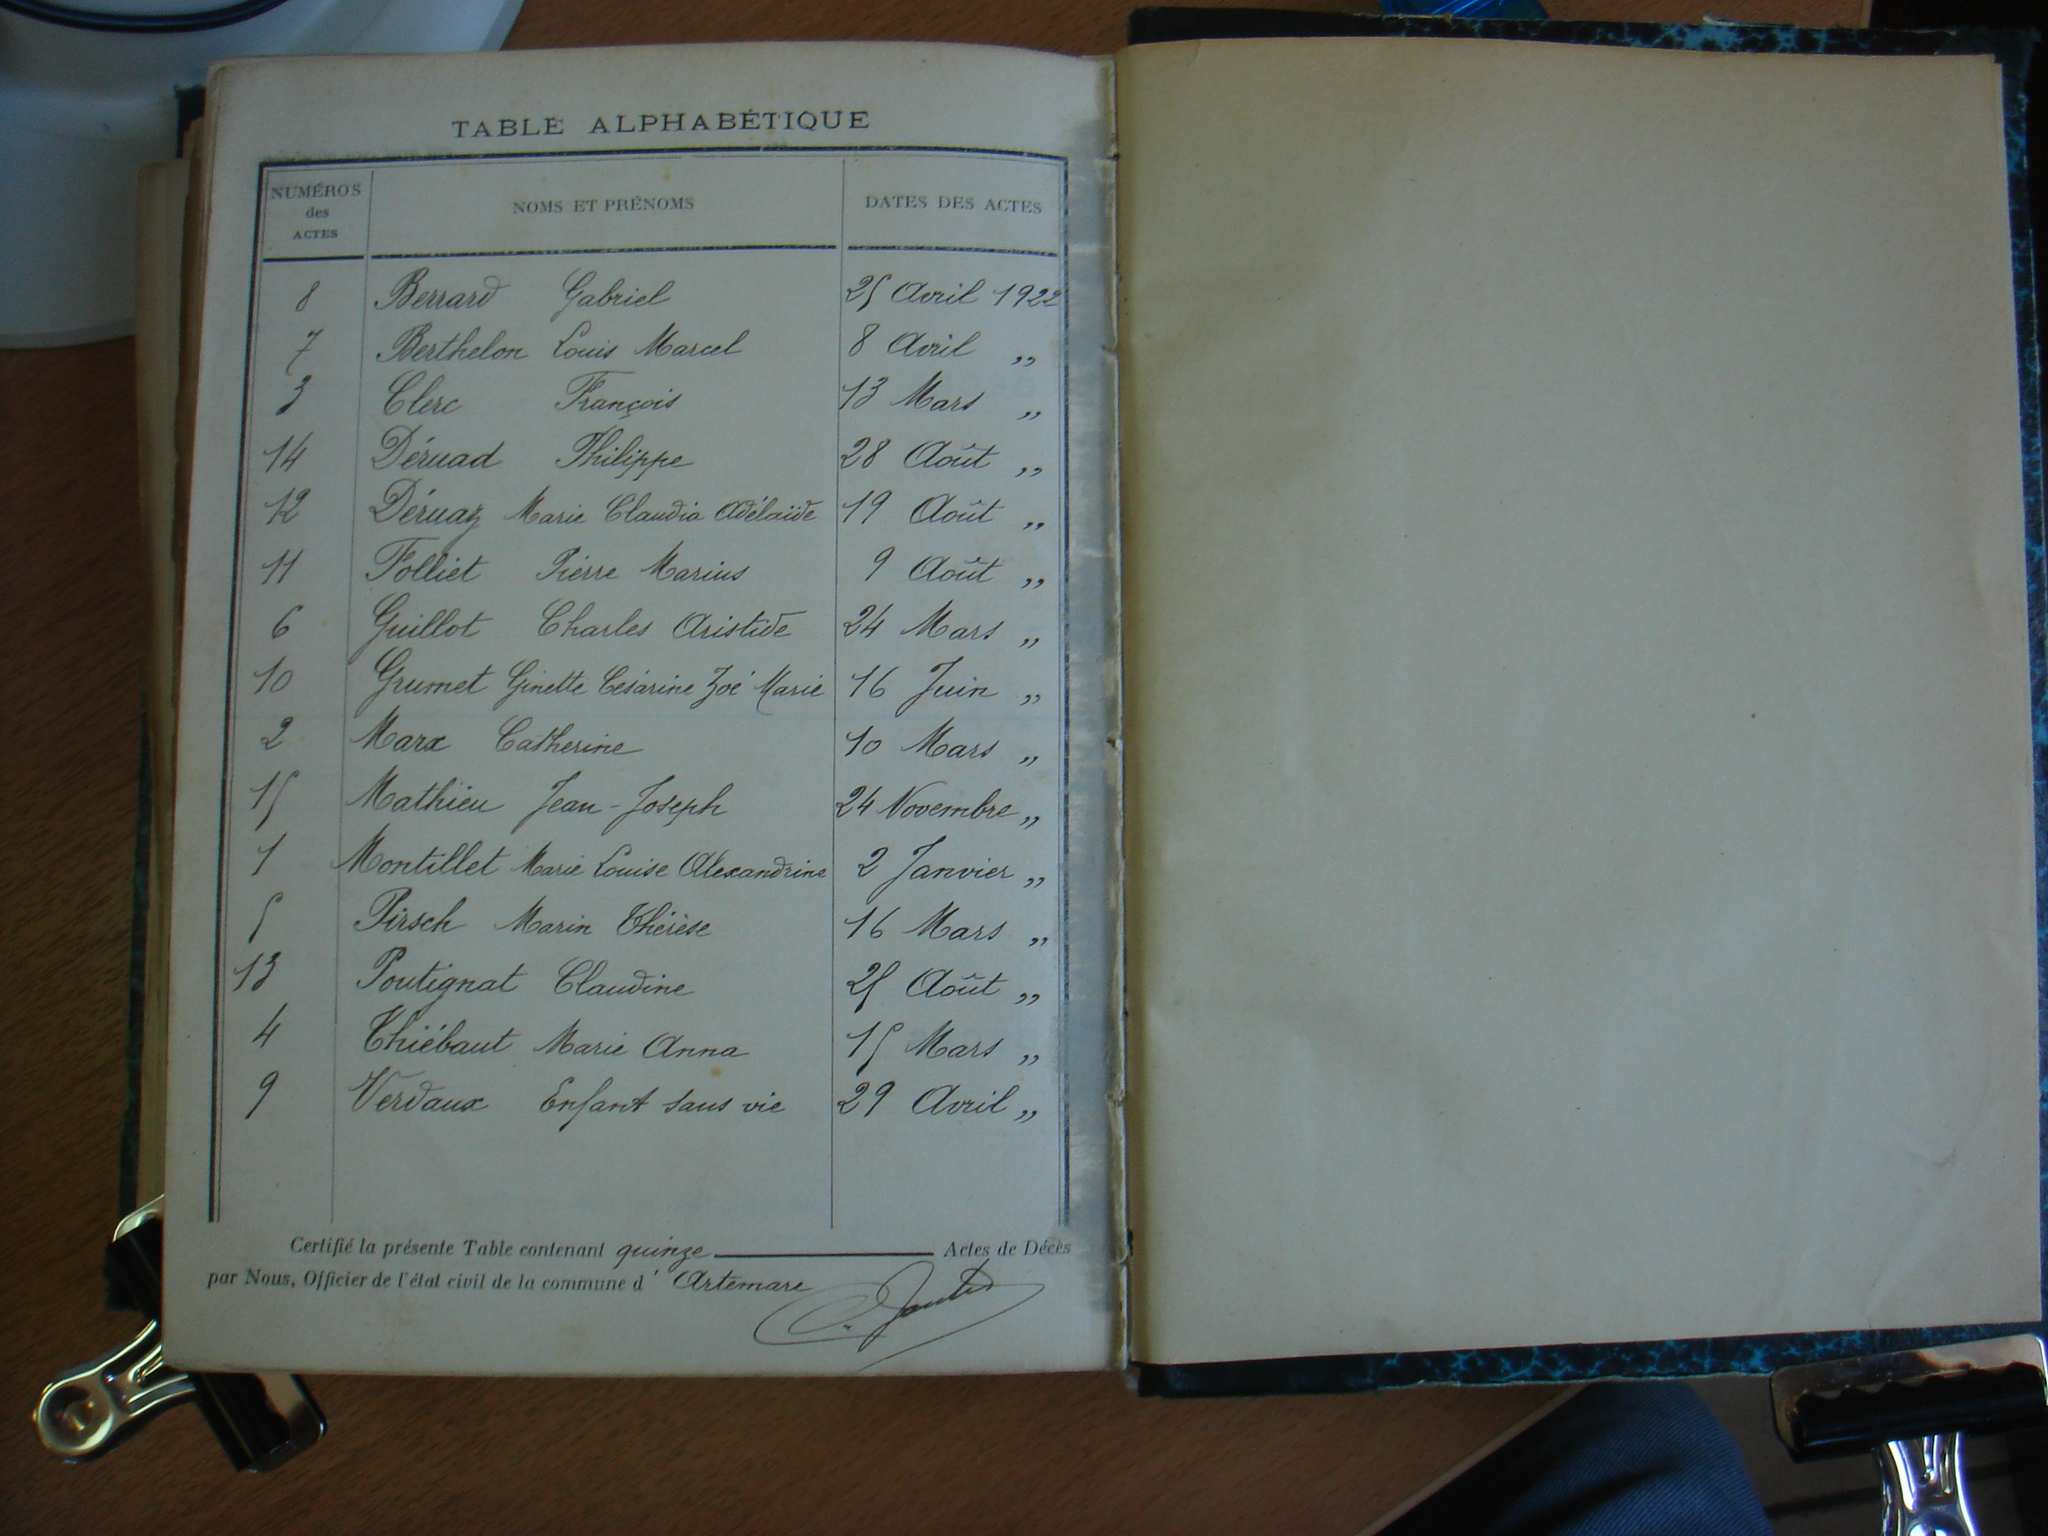 TABLE ALPHABÉTIQUE
NUMÉROS des ACTES NOMS ET PRÉNOMS DATES DES ACTES
8 Berrard Gabriel 25 Avril 1922
7 Berthelon Louis Marcel 8 Avril „
3 Clerc François 13 Mars „
14 Déruad Philippe 28 Août „
12 Déruaz Marie Claudia Adélaïde 19 Août „
11 Folliet Pierre Marius 9 Août „
6 Guillot Charles Aristide 24 Mars „
10 Grumet Ginette Césarine Zoé Marie 16 Juin „
2 Marx Catherine 10 Mars „
15 Mathieu Jean-Joseph 24 Novembre „
1 Montillet Marie Louise Alexandrine 2 Janvier „
5 Pirsch Marin Thérèse 16 Mars „
13 Poutignat Claudine 25 Août „
4 Thiébaut Marie Anna 15 Mars „
9 Verdaux Enfant sans vie 29 Avril „
Certifié la présente Table contenant quinze Actes de Décès
par Nous, Officier de l'état civil de la commune d' Artemare